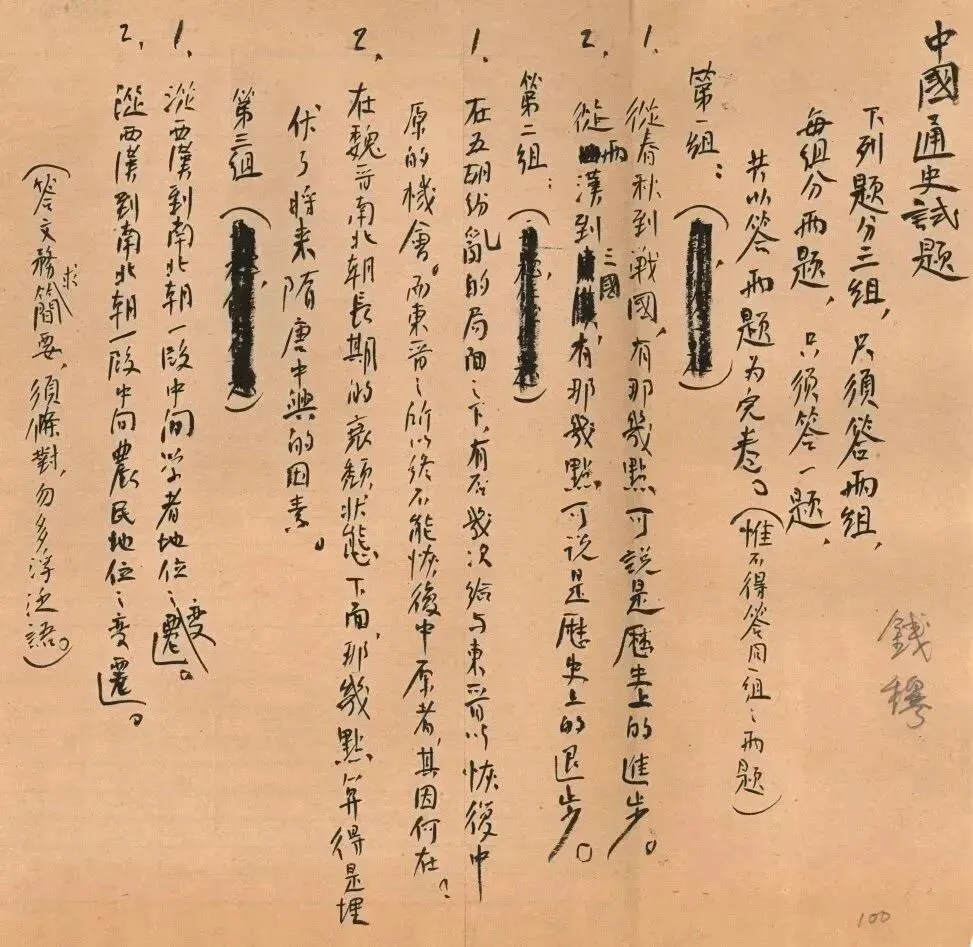 中國通史試題
下列題分三組，只須答兩組，
每組分兩題，只須答一題，
共以答兩題为完卷。（惟不得答同一組之兩題）
錢穆
第一組：（）
1、從春秋到戰國，有那幾點可說是歷史上的進步。
2、從兩漢到三國，有那幾點可说是歷史上的退步。
第二組：（）
1、在五胡纷亂的局面之下，有否幾次給与東晋以恢復中
原的機會。而東晋之所以终不能恢復中原者，其因何在。
2、在魏晋南北朝長期的衰頹狀態下面，那幾點算得是埋
伏了將来隋唐中興的因素。
第三組（）
1、從西漢到南北朝一段中间学者地位之变遷。
2、從西漢到南北朝一段中间農民地位之变遷。
（答文務求簡要，須條對，勿多浮泛語。）
100